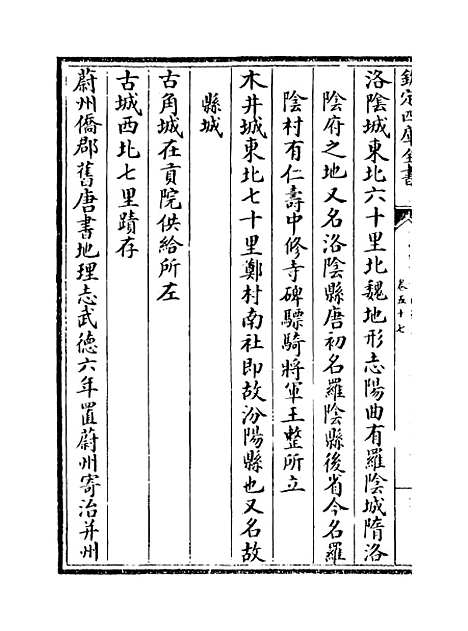 欽定四庫全書
卷五十七
洛陰城東北六十里北魏地形志陽曲有羅陰城隋洛
陰府之地又名洛陰縣唐初名羅陰縣後省今名羅
陰村有仁壽中修寺碑驃騎將軍王整所立
木井城東北七十里鄭村南社即故汾陽縣也又名故
縣城
古角城在貢院供給所左
古城西北七里蹟存
蔚州僑郡舊唐書地理志武德六年置蔚州寄治并州